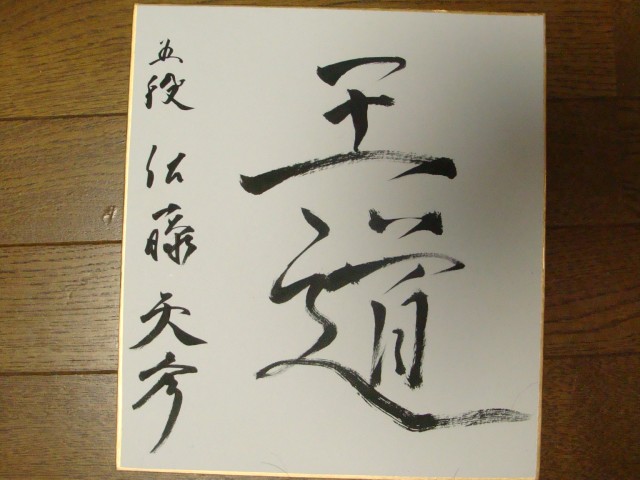 王道
五段 佐藤天彦